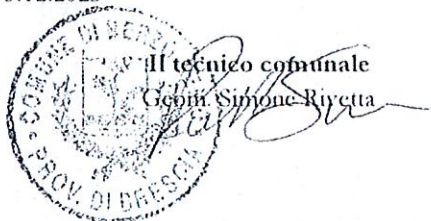 Il tecnico comunale
Geom. Simone Rivetta
COMUNE DI
PROV. DI BRESCIA